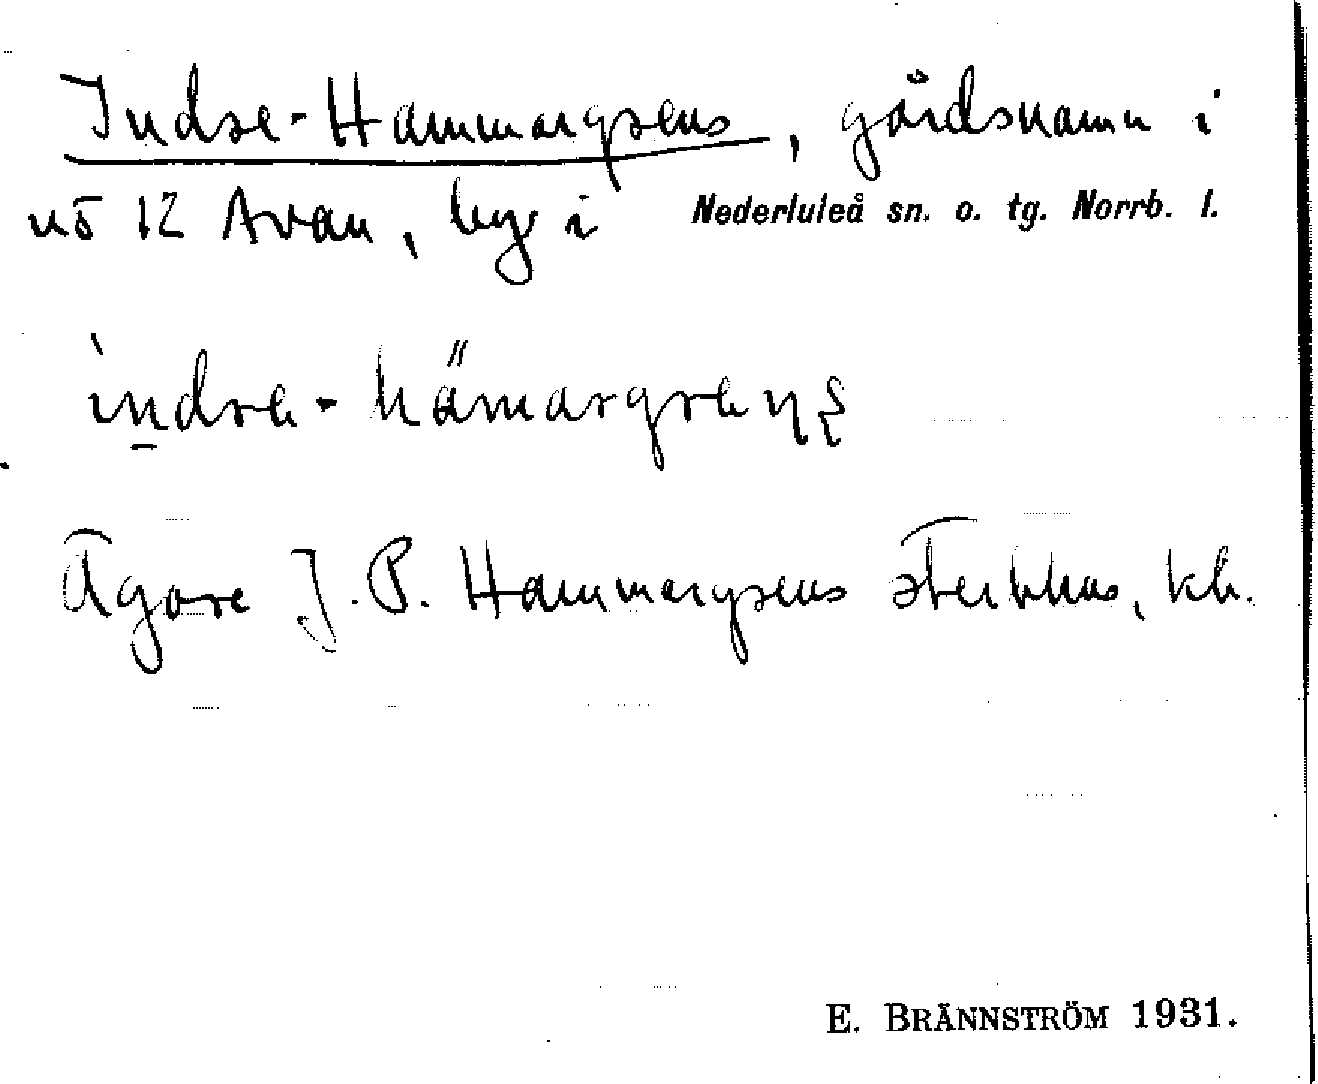 Indre-Hammargrens, gårdsnamn i
nō 12 Avan, by i Nederluleå sn. o. tg. Norrb. l.
Ägare J. P. Hammargrens sterbhus, kh.
E. BRÄNNSTRÖM 1931.